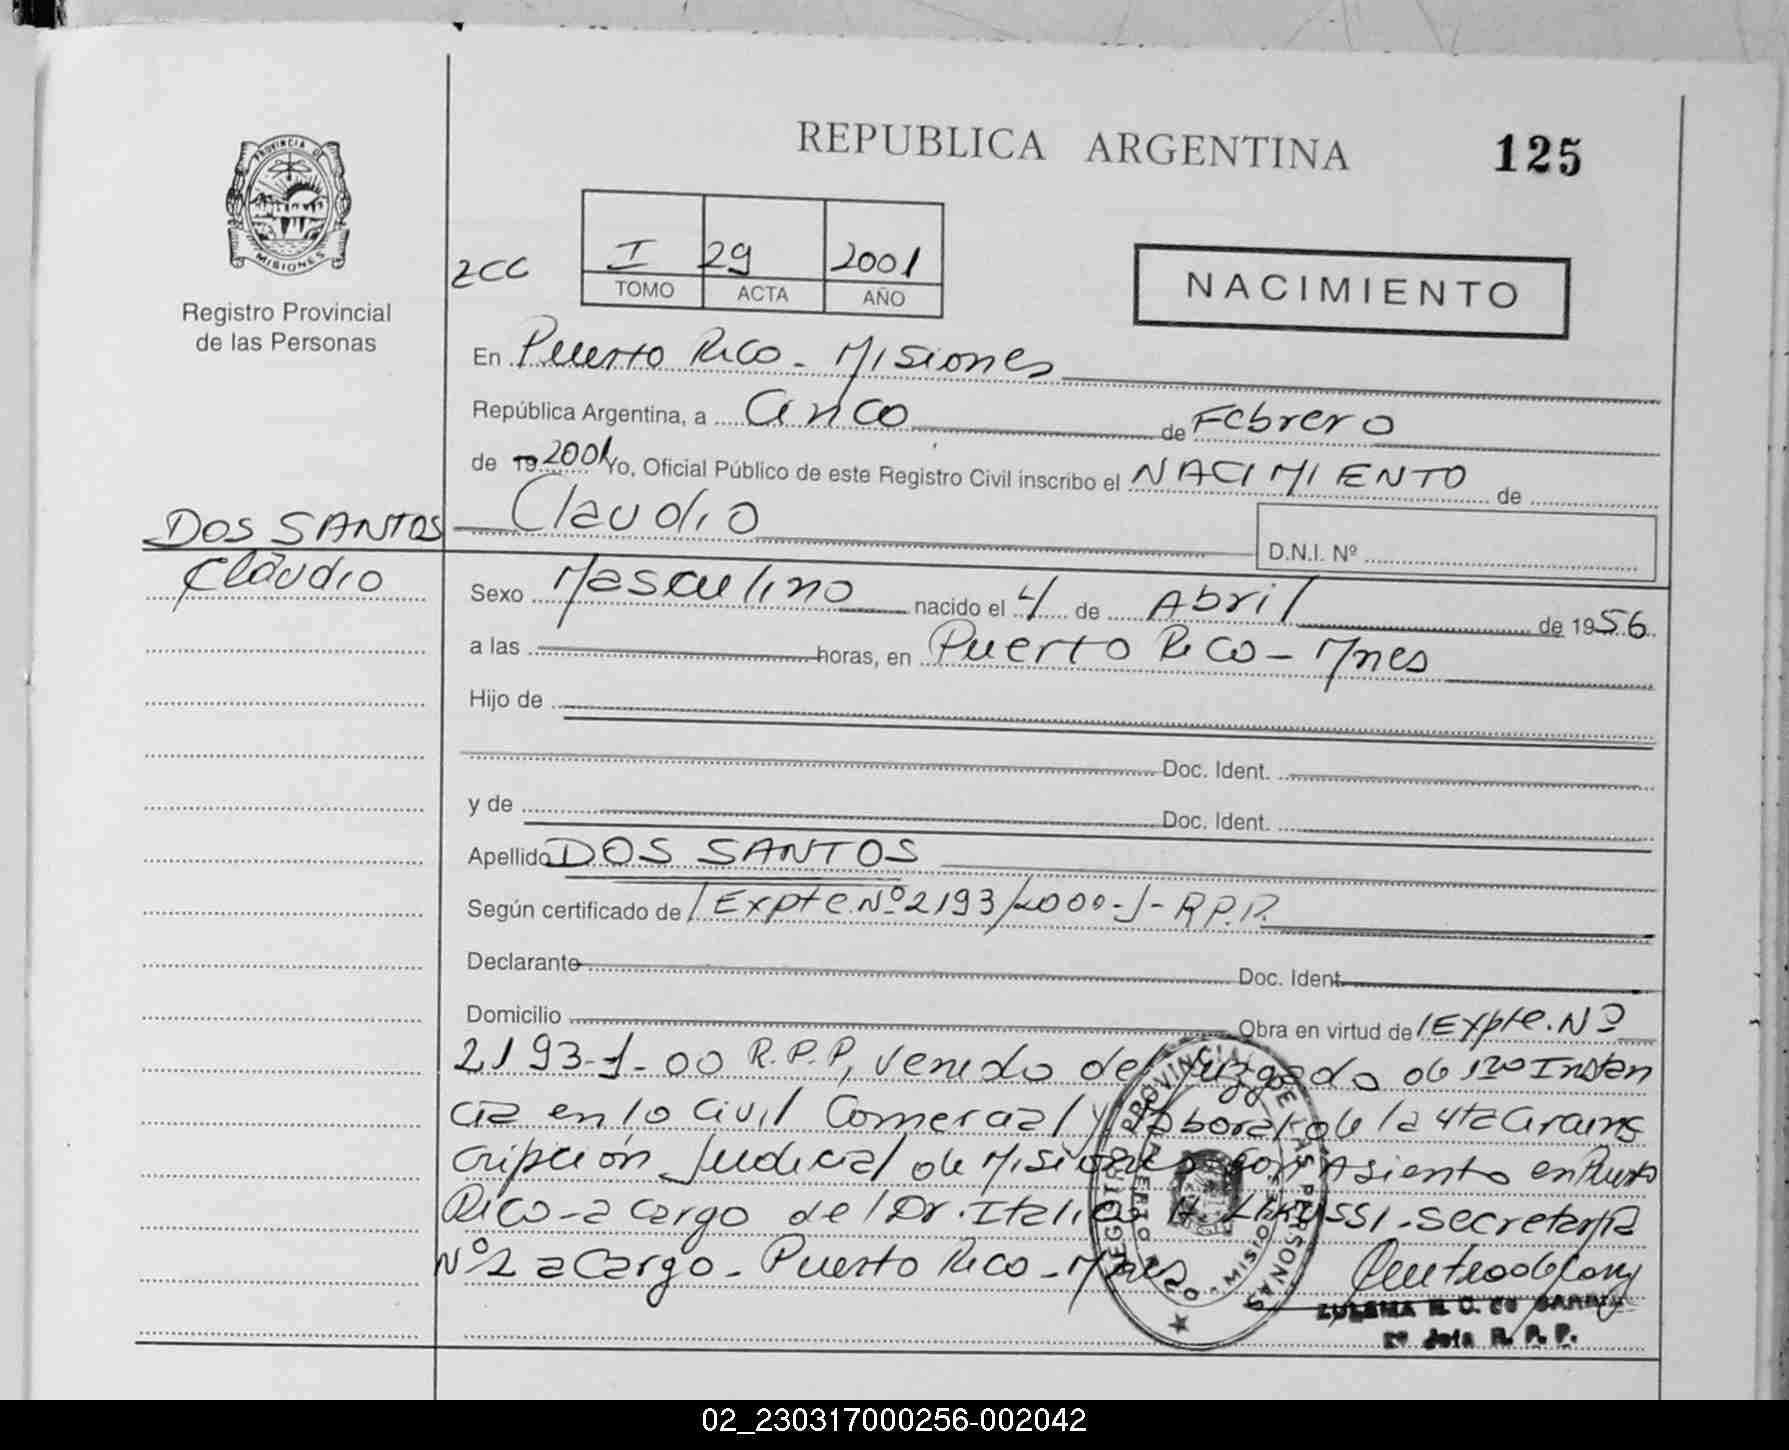 REPUBLICA ARGENTINA
125
PROVINCIA DE
MISIONES
Registro Provincial
de las Personas
2CC
I 29 2001
TOMO ACTA AÑO
NACIMIENTO
En Puerto Rico - Misiones
República Argentina, a Cinco de Febrero
de 19 2001 Yo, Oficial Público de este Registro Civil inscribo el NACIMIENTO de
DOS SANTOS
Claudio
Claudio
D.N.I. Nº
Sexo Masculino nacido el 4 de Abril de 1956
a las horas, en Puerto Rico - Mnes
Hijo de
Doc. Ident.
y de Doc. Ident.
Apellido DOS SANTOS
Según certificado de Expte. Nº 2193/2000-J-R.P.P.
Declarante Doc. Ident.
Domicilio Obra en virtud de Expte. Nº
2193-J-00 R.P.P, venido del Juzgado de 1ro Instan
cia en lo Civil Comercial y Laboral de la 4ta Circuns
cripción Judicial de Misiones con Asiento en Puerto
Rico - a cargo del Dr. Italico - Secretaria
Nº 2 a Cargo - Puerto Rico - Mnes
REGISTRO PROVINCIAL DE LAS PERSONAS
PUERTO RICO - MISIONES
ZULEMA
R. P. P.
02_230317000256-002042